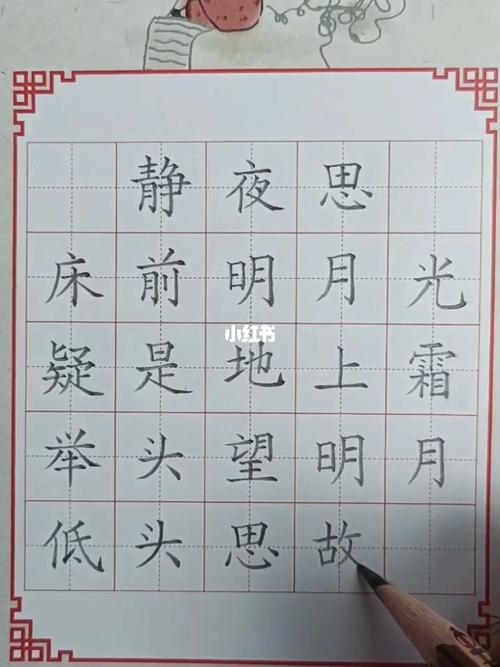 静夜思
床前明月光
疑是地上霜
小红书
举头望明月
低头思故